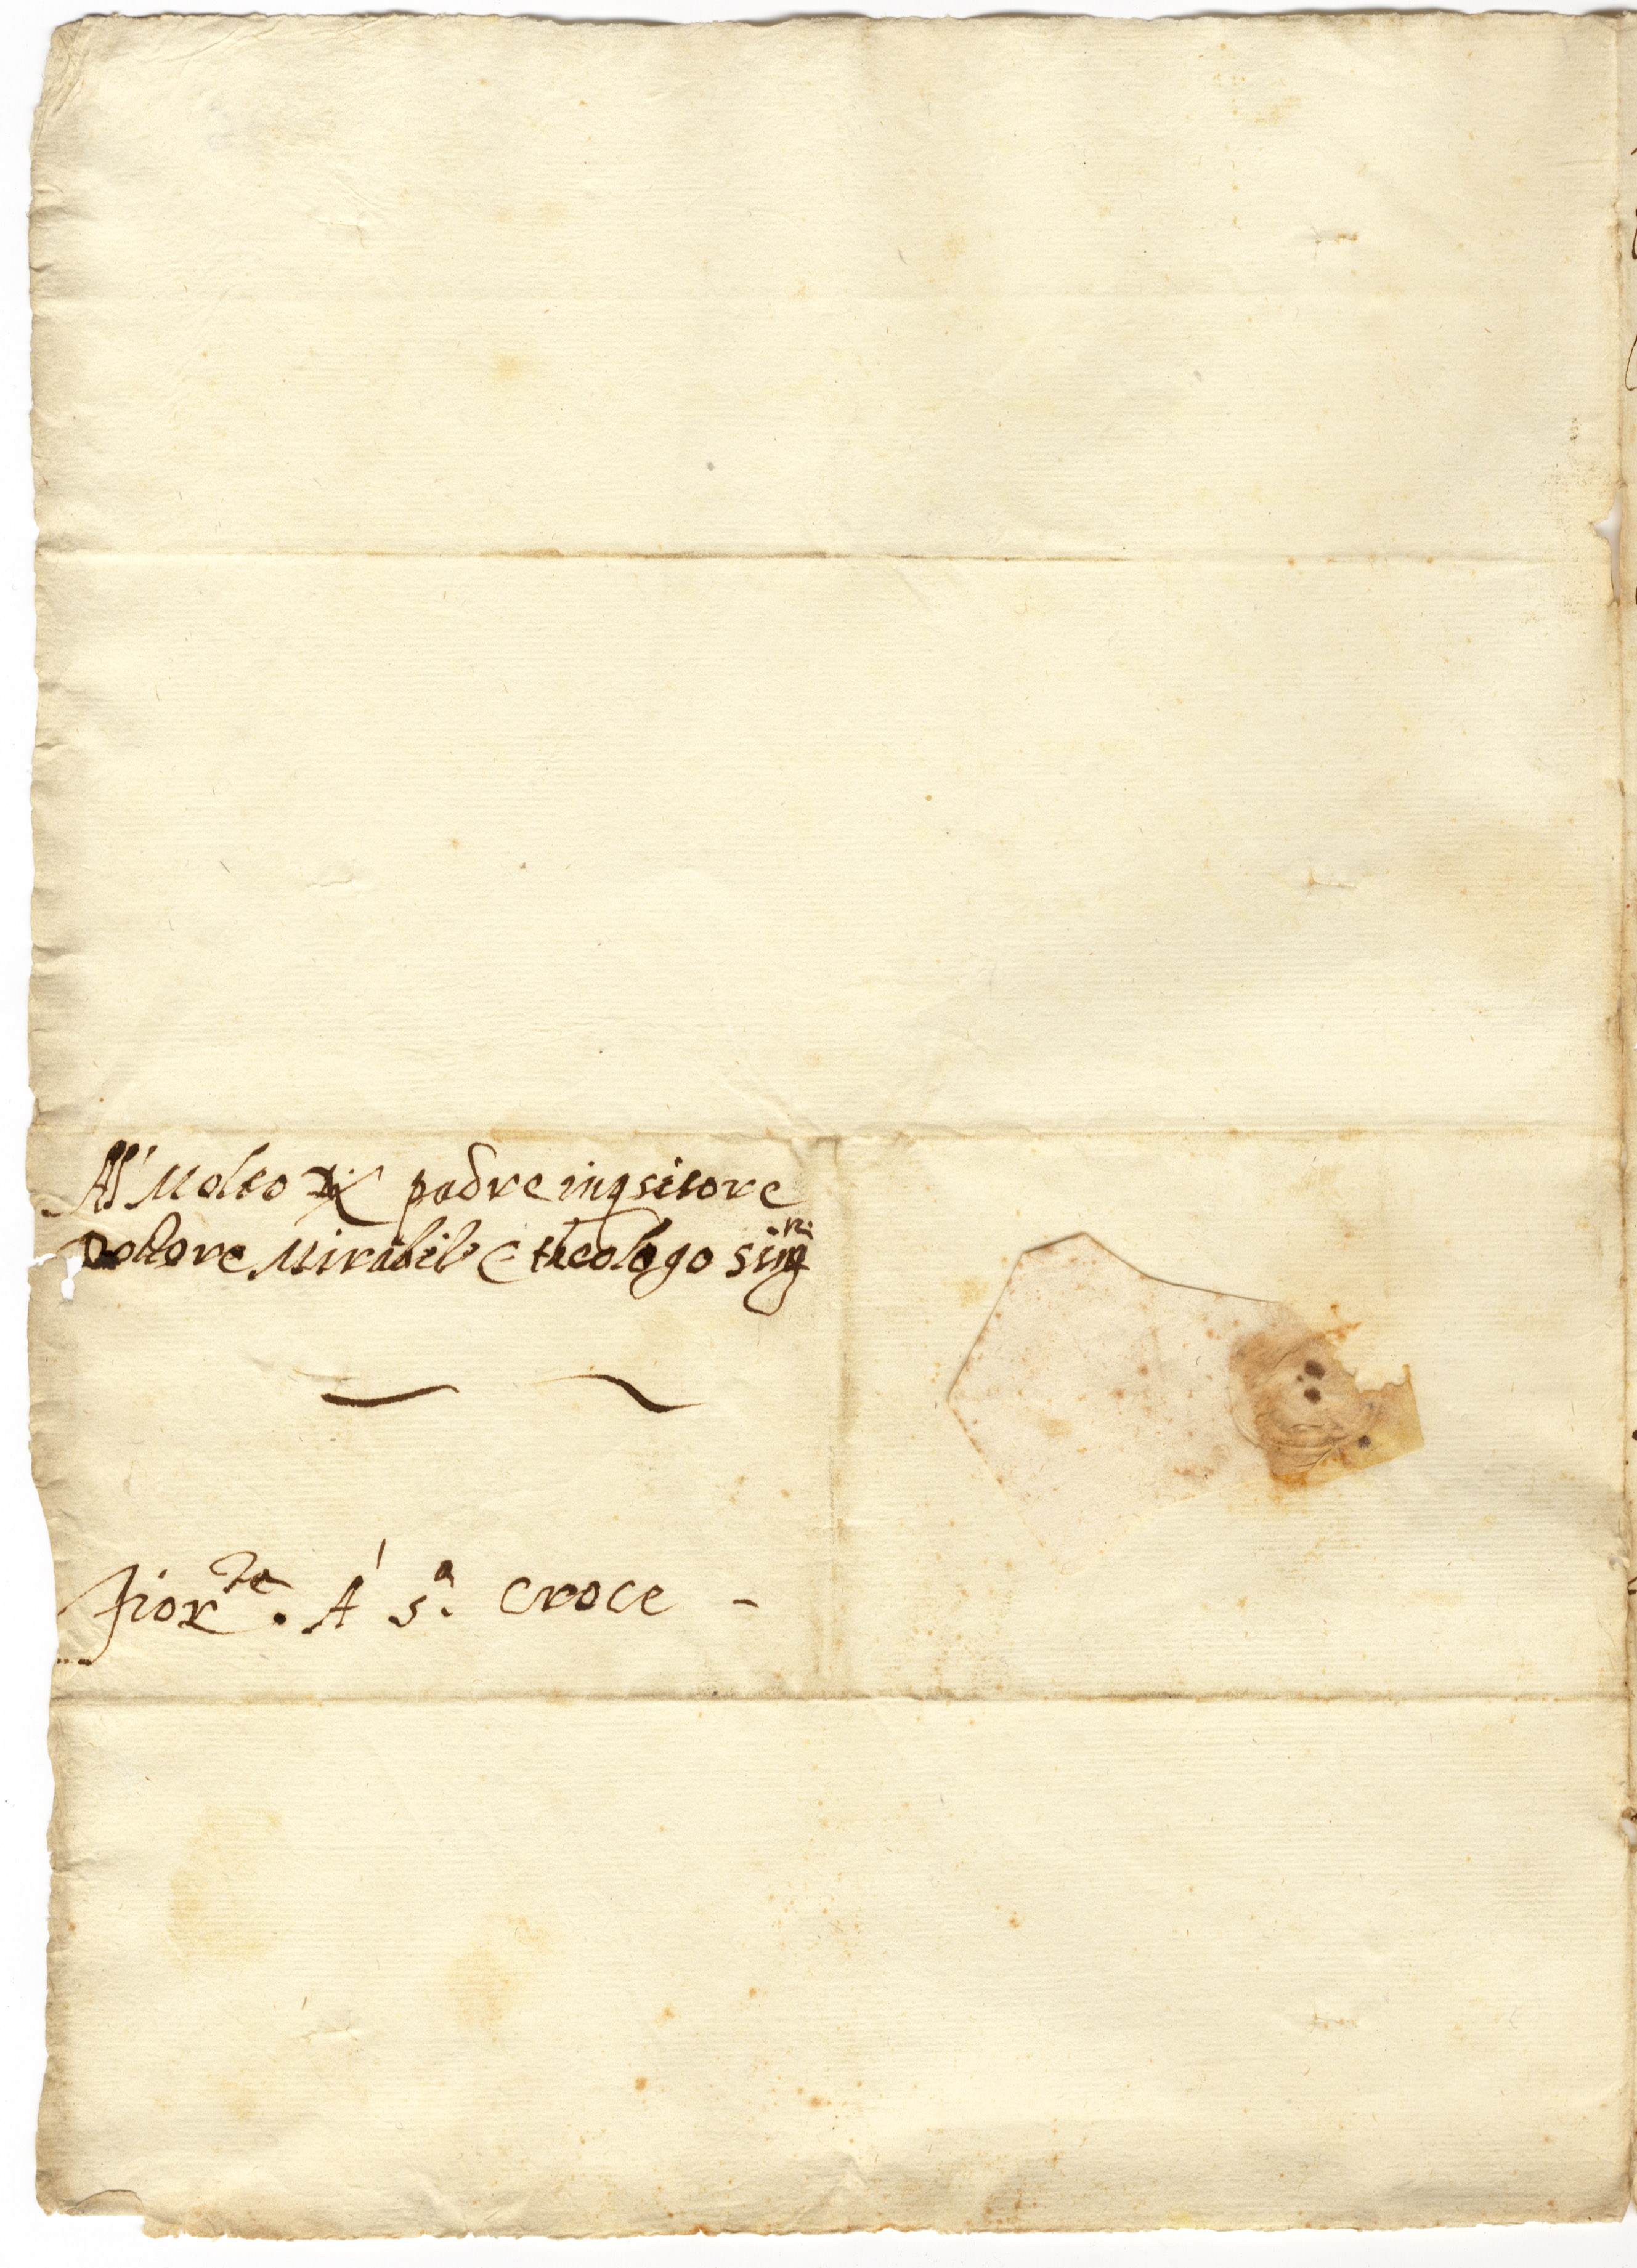 Al Molto R padre inqsitore
Dottore Mirabile E theologo singri
Fiorze. A sa. Croce -